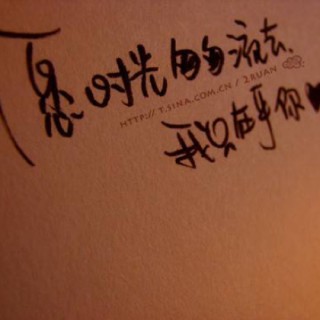 时光匆匆流去、
HTTP://T.SINA.COM.CN/2RUAN
我只在乎你